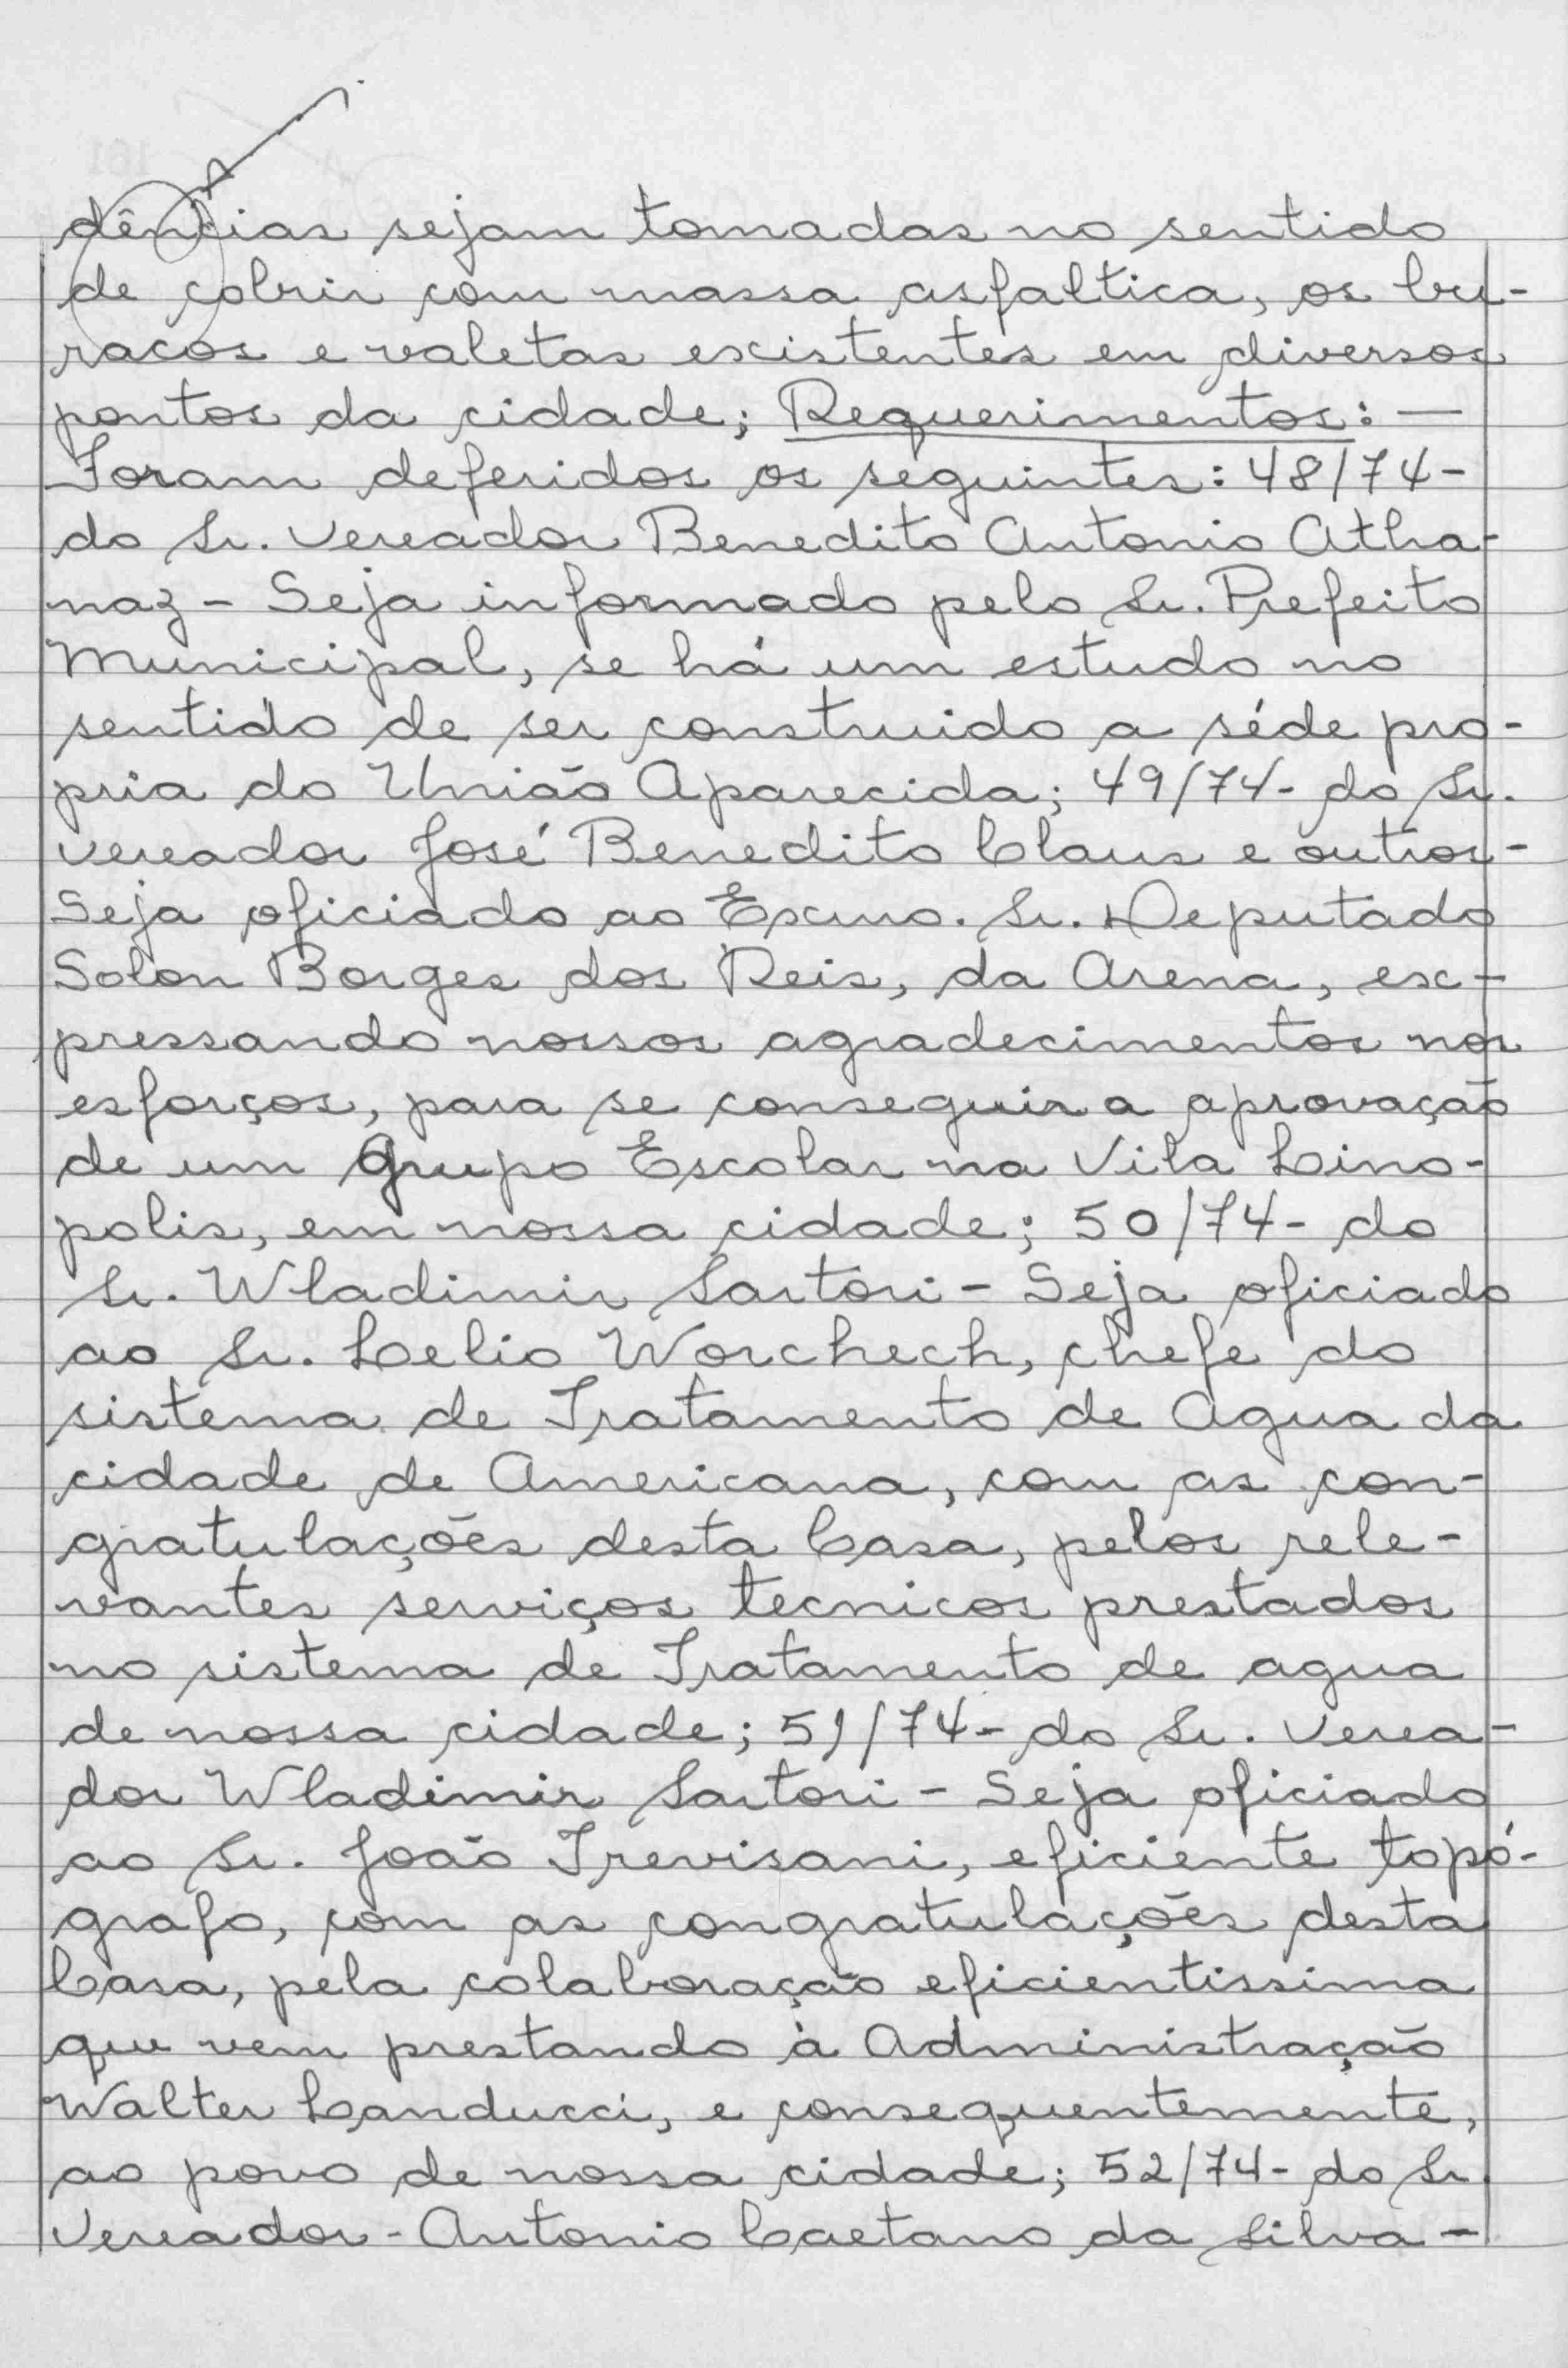 dências sejam tomadas no sentido
de cobrir com massa asfaltica, os bu-
racos e valetas existentes em diversos
pontos da cidade; Requerimentos: —
Foram deferidos os seguintes: 48/74-
do Sr. Vereador Benedito Antonio Atha-
naz - Seja informado pelo Sr. Prefeito
Municipal, se há um estudo no
sentido de ser construido a séde pro-
pria do União Aparecida; 49/74- do Sr.
vereador José Benedito Claus e outros-
Seja oficiado ao Exmo. Sr. Deputado
Solon Borges dos Reis, da Arena, ex-
pressando nossos agradecimentos nos
esforços, para se conseguir a aprovação
de um Grupo Escolar na Vila Lino-
polis, em nossa cidade; 50/74- do
Sr. Wladimir Sartori - Seja oficiado
ao Sr. Lelio Worchech, chefe do
sistema de Tratamento de Agua da
cidade de Americana, com as con-
gratulações desta Casa, pelos rele-
vantes serviços tecnicos prestados
no sistema de Tratamento de agua
de nossa cidade; 51/74- do Sr. Verea-
dor Wladimir Sartori - Seja oficiado
ao Sr. João Trevisani, eficiente topó-
grafo, com as congratulações desta
Casa, pela colaboração eficientissima
que vem prestando à Administração
Walter Landucci, e consequentemente,
ao povo de nossa cidade; 52/74- do Sr.
Vereador - Antonio Caetano da Silva -